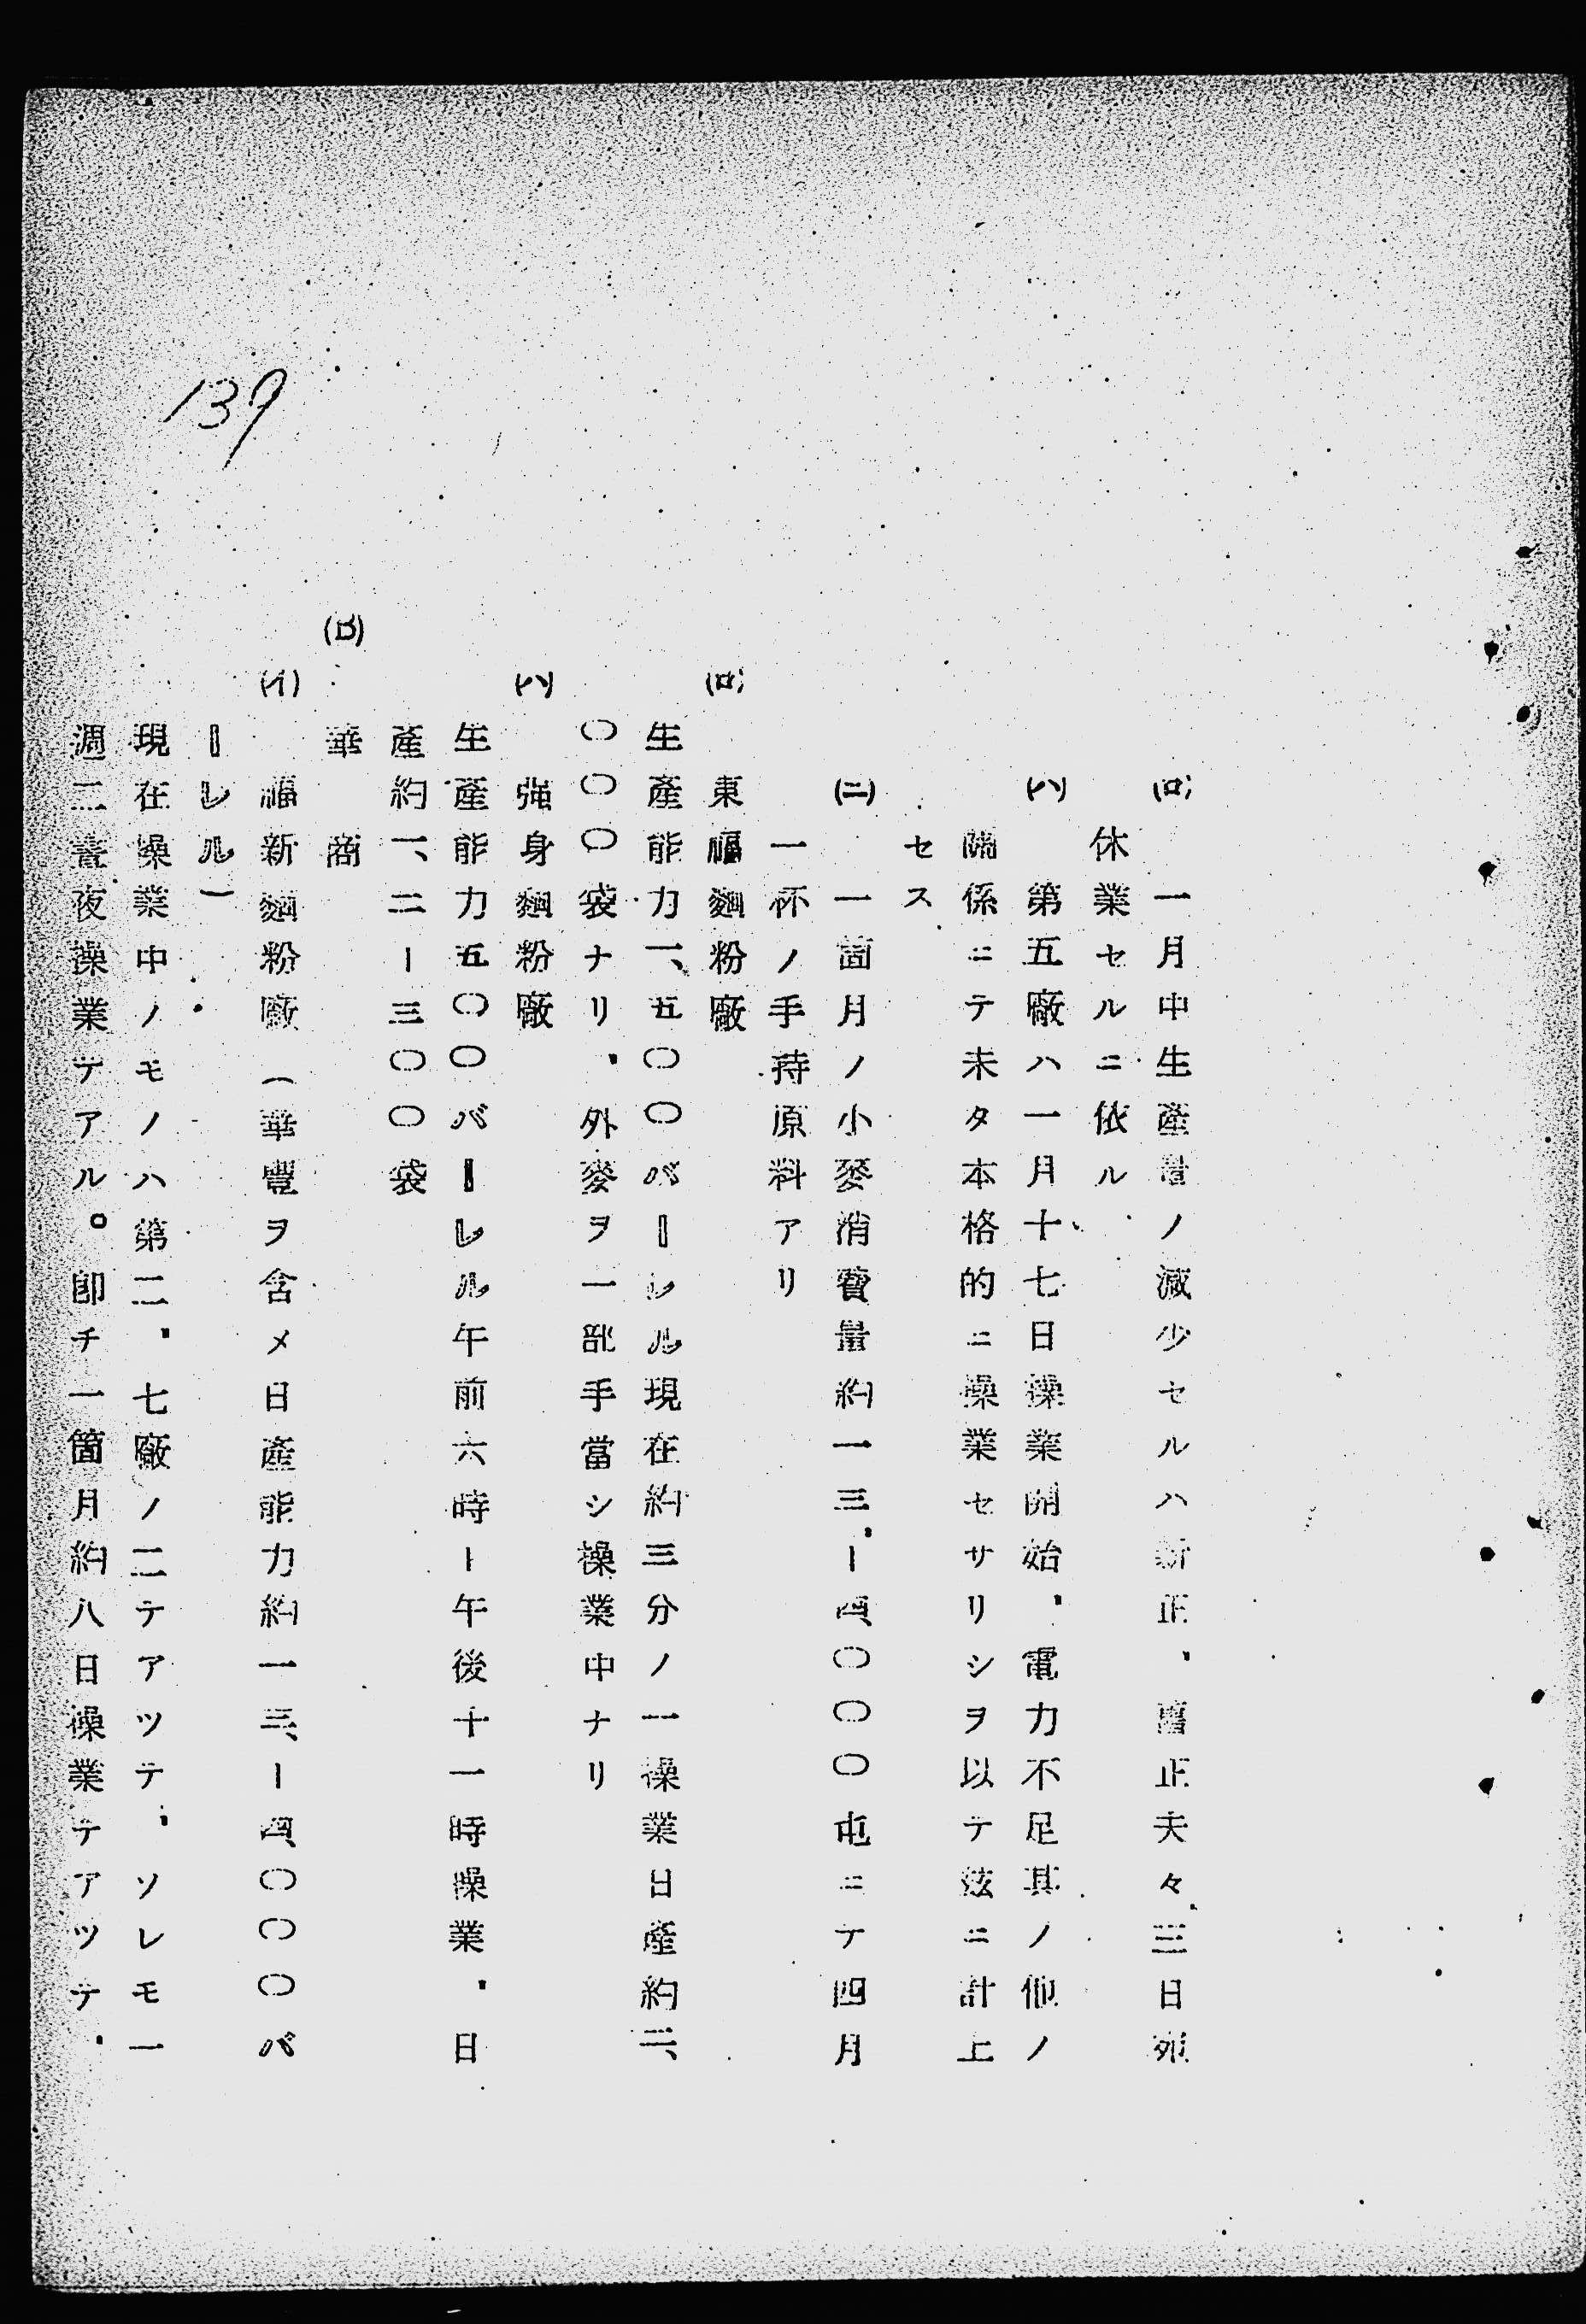 139
(ロ) 一月中生產量ノ減少セルハ新正、舊正夫々三日宛
休業セルニ依ル
(ハ) 第五廠ハ一月十七日操業開始、電力不足其ノ他ノ
關係ニテ未タ本格的ニ操業セサリシヲ以テ玆ニ計上
セス
(ニ) 一箇月ノ小麥消費量約一三、ー四、〇〇〇屯ニテ四月
一杯ノ手持原料アリ
(ロ) 東福麵粉廠
生產能力一、五〇〇バーレル現在約三分ノ一操業日產約二、
〇〇〇袋ナリ、外麥ヲ一部手當シ操業中ナリ
(ハ) 強身麵粉廠
生產能力五〇〇バーレル午前六時ー午後十一時操業、日
產約一、二ー三〇〇袋
(B) 華商
(イ) 福新麵粉廠(華豐ヲ含メ日產能力約一三、ー四、〇〇〇バ
ーレル)
現在操業中ノモノハ第二、七廠ノ二テアツテ、ソレモ一
週二晝夜操業テアル。卽チ一箇月約八日操業テアツテ、